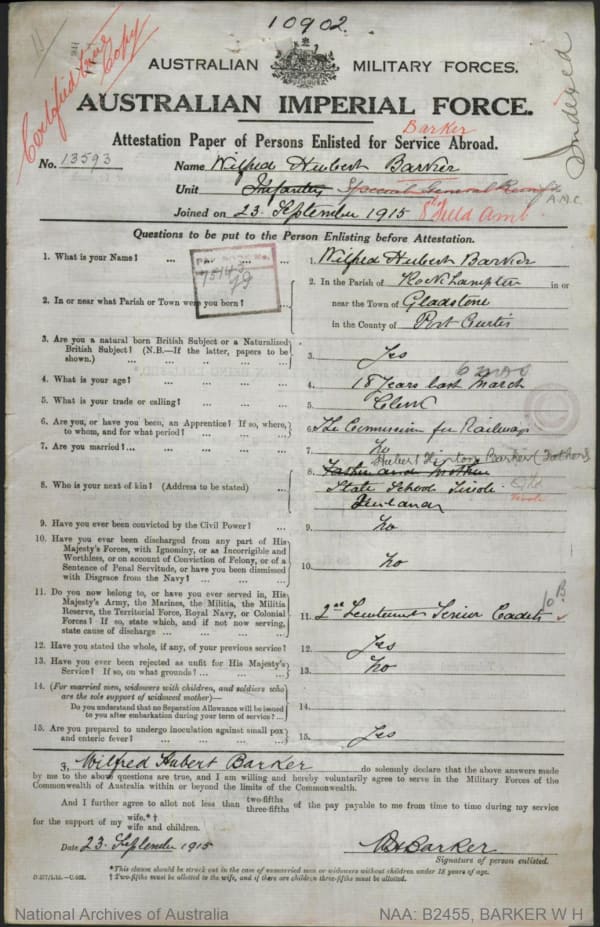 10902.
Certified true Copy
Indexed
AUSTRALIAN MILITARY FORCES.
AUSTRALIAN IMPERIAL FORCE.
Barker
Attestation Paper of Persons Enlisted for Service Abroad.
No. 13593 Name Wilfred Hubert Barker
Unit Infantry Special General Reinfts A.M.C.
Joined on 23 September 1915 8th Field Amb.
Questions to be put to the Person Enlisting before Attestation.
1. What is your Name? ... ... ... 1. Wilfred Hubert Barker
75143
99
2. In or near what Parish or Town were you born? 2. In the Parish of Rockhampton in or
near the Town of Gladstone
in the County of Port Curtis
3. Are you a natural born British Subject or a Naturalized
British Subject? (N.B.—If the latter, papers to be
shown.) ... ... ... 3. Yes
6 mos
4. What is your age? ... ... ... 4. 18 Years last March
5. What is your trade or calling? ... ... 5. Clerk
6. Are you, or have you been, an Apprentice? If so, where,
to whom, and for what period? ... ... 6. The Commission for Railways
7. Are you married? ... ... ... 7. No
Hubert Hinton Barker (Father)
8. Who is your next of kin? (Address to be stated) ... 8. Father and Mother
State School Tivoli Qld
9. Have you ever been convicted by the Civil Power? ... 9. No
10. Have you ever been discharged from any part of His
Majesty's Forces, with Ignominy, or as Incorrigible and
Worthless, or on account of Conviction of Felony, or of a
Sentence of Penal Servitude, or have you been dismissed
with Disgrace from the Navy? ... ... 10. No
11. Do you now belong to, or have you ever served in, His
Majesty's Army, the Marines, the Militia, the Militia
Reserve, the Territorial Force, Royal Navy, or Colonial
Forces? If so, state which, and if not now serving,
state cause of discharge ... ... ... 11. 2nd Lieutenant Senior Cadets 10 B
12. Have you stated the whole, if any, of your previous service? 12. Yes
13. Have you ever been rejected as unfit for His Majesty's
Service? If so, on what grounds? ... ... 13. No
14. (For married men, widowers with children, and soldiers who
are the sole support of widowed mother)—
Do you understand that no Separation Allowance will be issued
to you after embarkation during your term of service? ... 14.
15. Are you prepared to undergo inoculation against small pox
and enteric fever? ... ... ... 15. Yes
I, Wilfred Hubert Barker do solemnly declare that the above answers made
by me to the above questions are true, and I am willing and hereby voluntarily agree to serve in the Military Forces of the
Commonwealth of Australia within or beyond the limits of the Commonwealth.
And I further agree to allot not less than two-fifths three-fifths of the pay payable to me from time to time during my service
for the support of my wife.*† wife and children.
Date 23. September 1915 WHBarker
Signature of person enlisted.
*This clause should be struck out in the case of unmarried men or widowers without children under 18 years of age.
† Two-fifths must be allotted to the wife, and if there are children three-fifths must be allotted.
National Archives of Australia NAA: B2455, BARKER W H